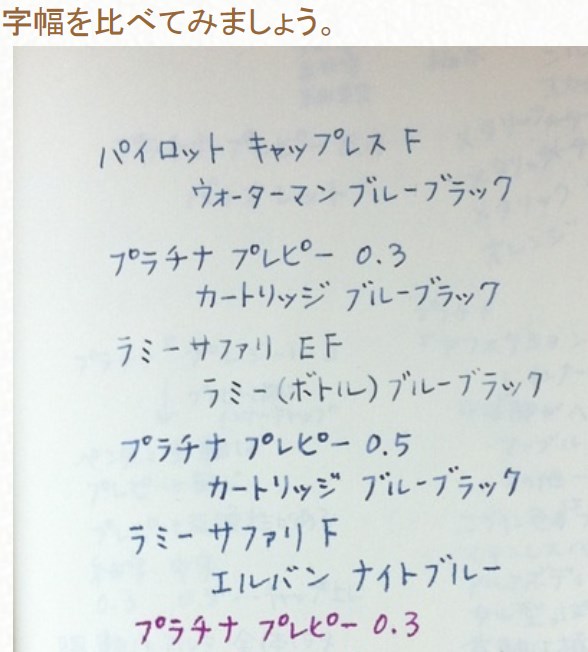 字幅を比べてみましょう。
パイロット キャップレス F
ウォーターマン ブルーブラック
プラチナ プレピー 0.3
カートリッジ ブルーブラック
ラミー サファリ EF
ラミー(ボトル)ブルーブラック
プラチナ プレピー 0.5
カートリッジ ブルーブラック
ラミー サファリ F
エルバン ナイトブルー
プラチナ プレピー 0.3